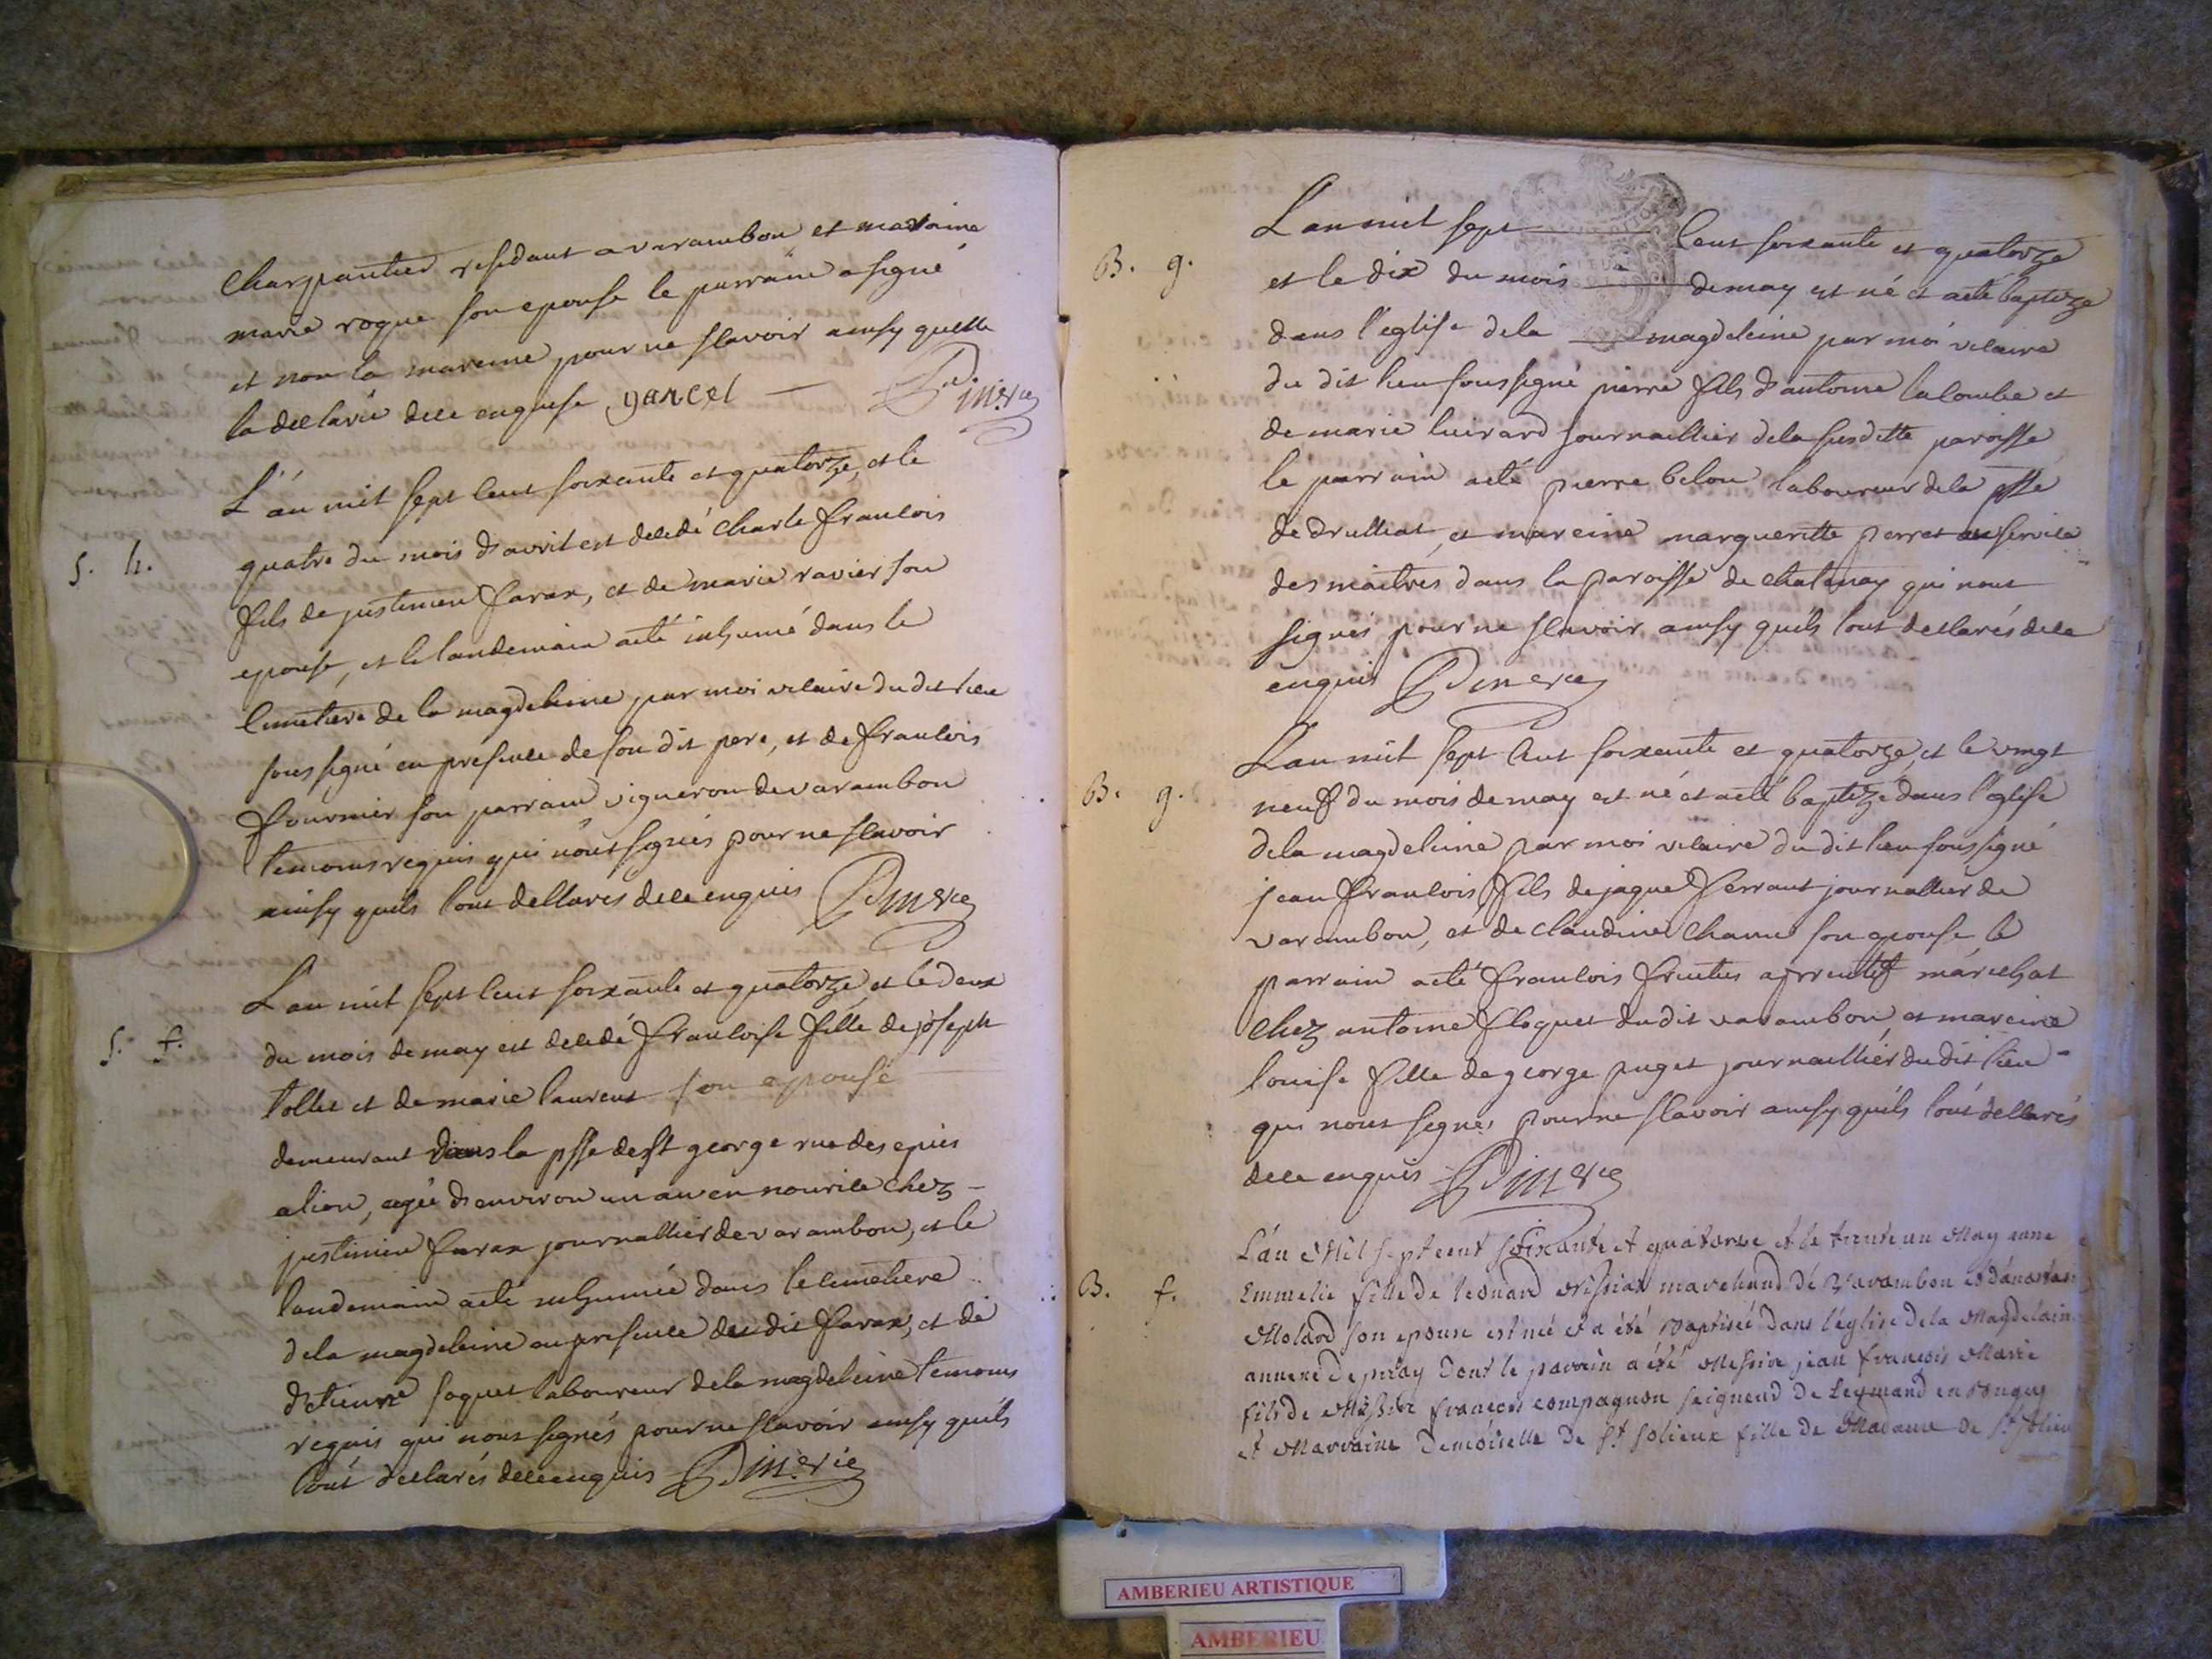 charpantier residant a varambon et maraine
marie roque son epouse le parrain a signé
et non la mareine pour ne scavoir ainsy quelle
la declarée de ce enquise garcel Dimere
L'an mil sept cent soixante et quatorze, et le
S. h. quatre du mois d'avril est decedé charle francois
fils de justinien favax, et de marie ravier son
epouse, et le landemain a eté inhumé dans le
cimetiere de la magdeleine par moi vicaire du dit lieu
soussigné en presence de son dit pere, et de francois
fournier son parrain vigneron de varambon
temoins requis qui n'ont signés pour ne scavoir
ainsy quils l'ont declarés de ce enquis Dimere
L'an mil sept cent soixante et quatorze, et le deux
S. f. du mois de may est decedé francoise fille de joseph
tollet et de marie laurent son epouse
demeurant dans la psse de st george rue des epies
a lion, agée d'environ un an en nourice chez
justinien favax journallier de varambon, et le
landemain a eté inhumée dans le cimetiere
de la magdeleine en presence du dit favax, et de
d'etienne soquet laboureur de la magdeleine temoins
requis qui n'ont signés pour ne scavoir ainsy quils
l'ont declarés de ce enquis Dimere
L'an mil sept cent soixante et quatorze
B. g. et le dix du mois de may est né et a eté baptizé
dans l'eglise de la magdeleine par moi vicaire
du dit lieu soussigné pierre fils d'antoine lacombe et
de marie luirard journaillier de la susditte paroisse
le parrain a eté pierre belon laboureur de la psse
de druillat, et mareine margueritte perret au service
des maitres dans la paroisse de chatenay qui n'ont
signés pour ne scavoir ainsy quils l'ont declarés de ce
enquis Dimere
L'an mil sept cent soixante et quatorze, et le vingt
B. g. neuf du mois de may est né et a eté baptizé dans l'eglise
de la magdeleine par moi vicaire du dit lieu soussigné
jean francois fils de jaque ferrant journallier de
varambon, et de claudine chanu son epouse, le
parrain a eté francois fruitus aprentif marechat
chez antoine floquet du dit varambon et mareine
louise fille de george puget journaillier du dit lieu
qui n'ont signés pour ne scavoir ainsy quils l'ont declarés
de ce enquis Dimere
L'an Mil sept cent soixante et quatorze et le trente un May anne
B. f. Emmelie fille de leonard Missiax marchand de Varambon et
Molard son epouse est née et a été Baptisée Dans l'église De la Magdelain
annexe De priay Dont le parrin a été Messire jean françois Marie
fils de Messire françois compagnon seigneur De Leymand en Bugey
et Marraine Demoiselle De St Solieux fille de Madame De St Solieu
AMBERIEU ARTISTIQUE
AMBERIEU